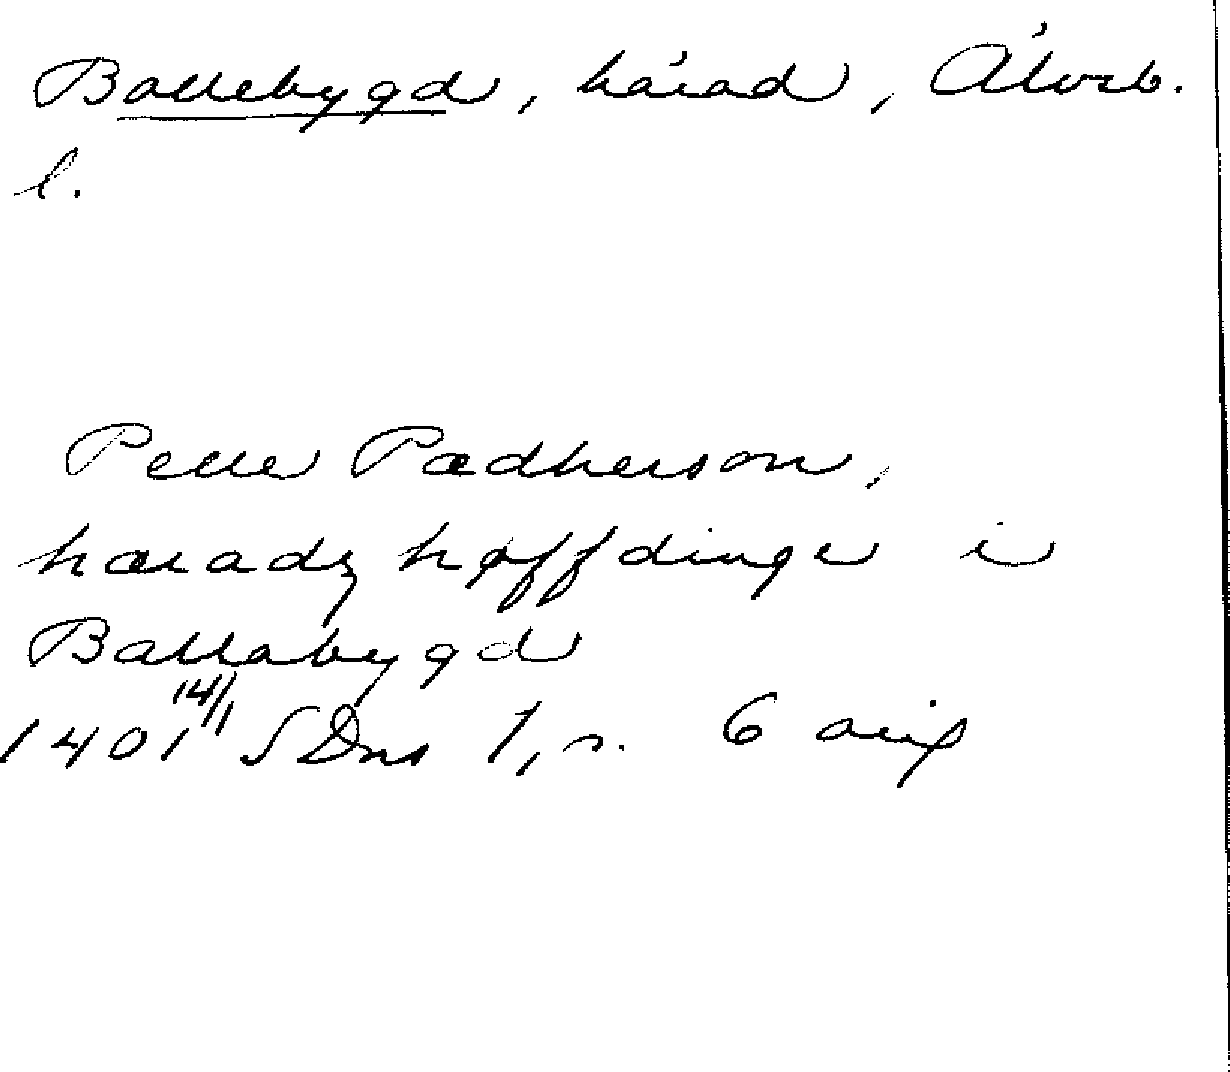 Bollebygd, härad, Älvsb.
l.
Pelle Pædherson,
hæradz høffdinge i
Ballabygd
1401 14/1 SDns 1, s. 6 orig